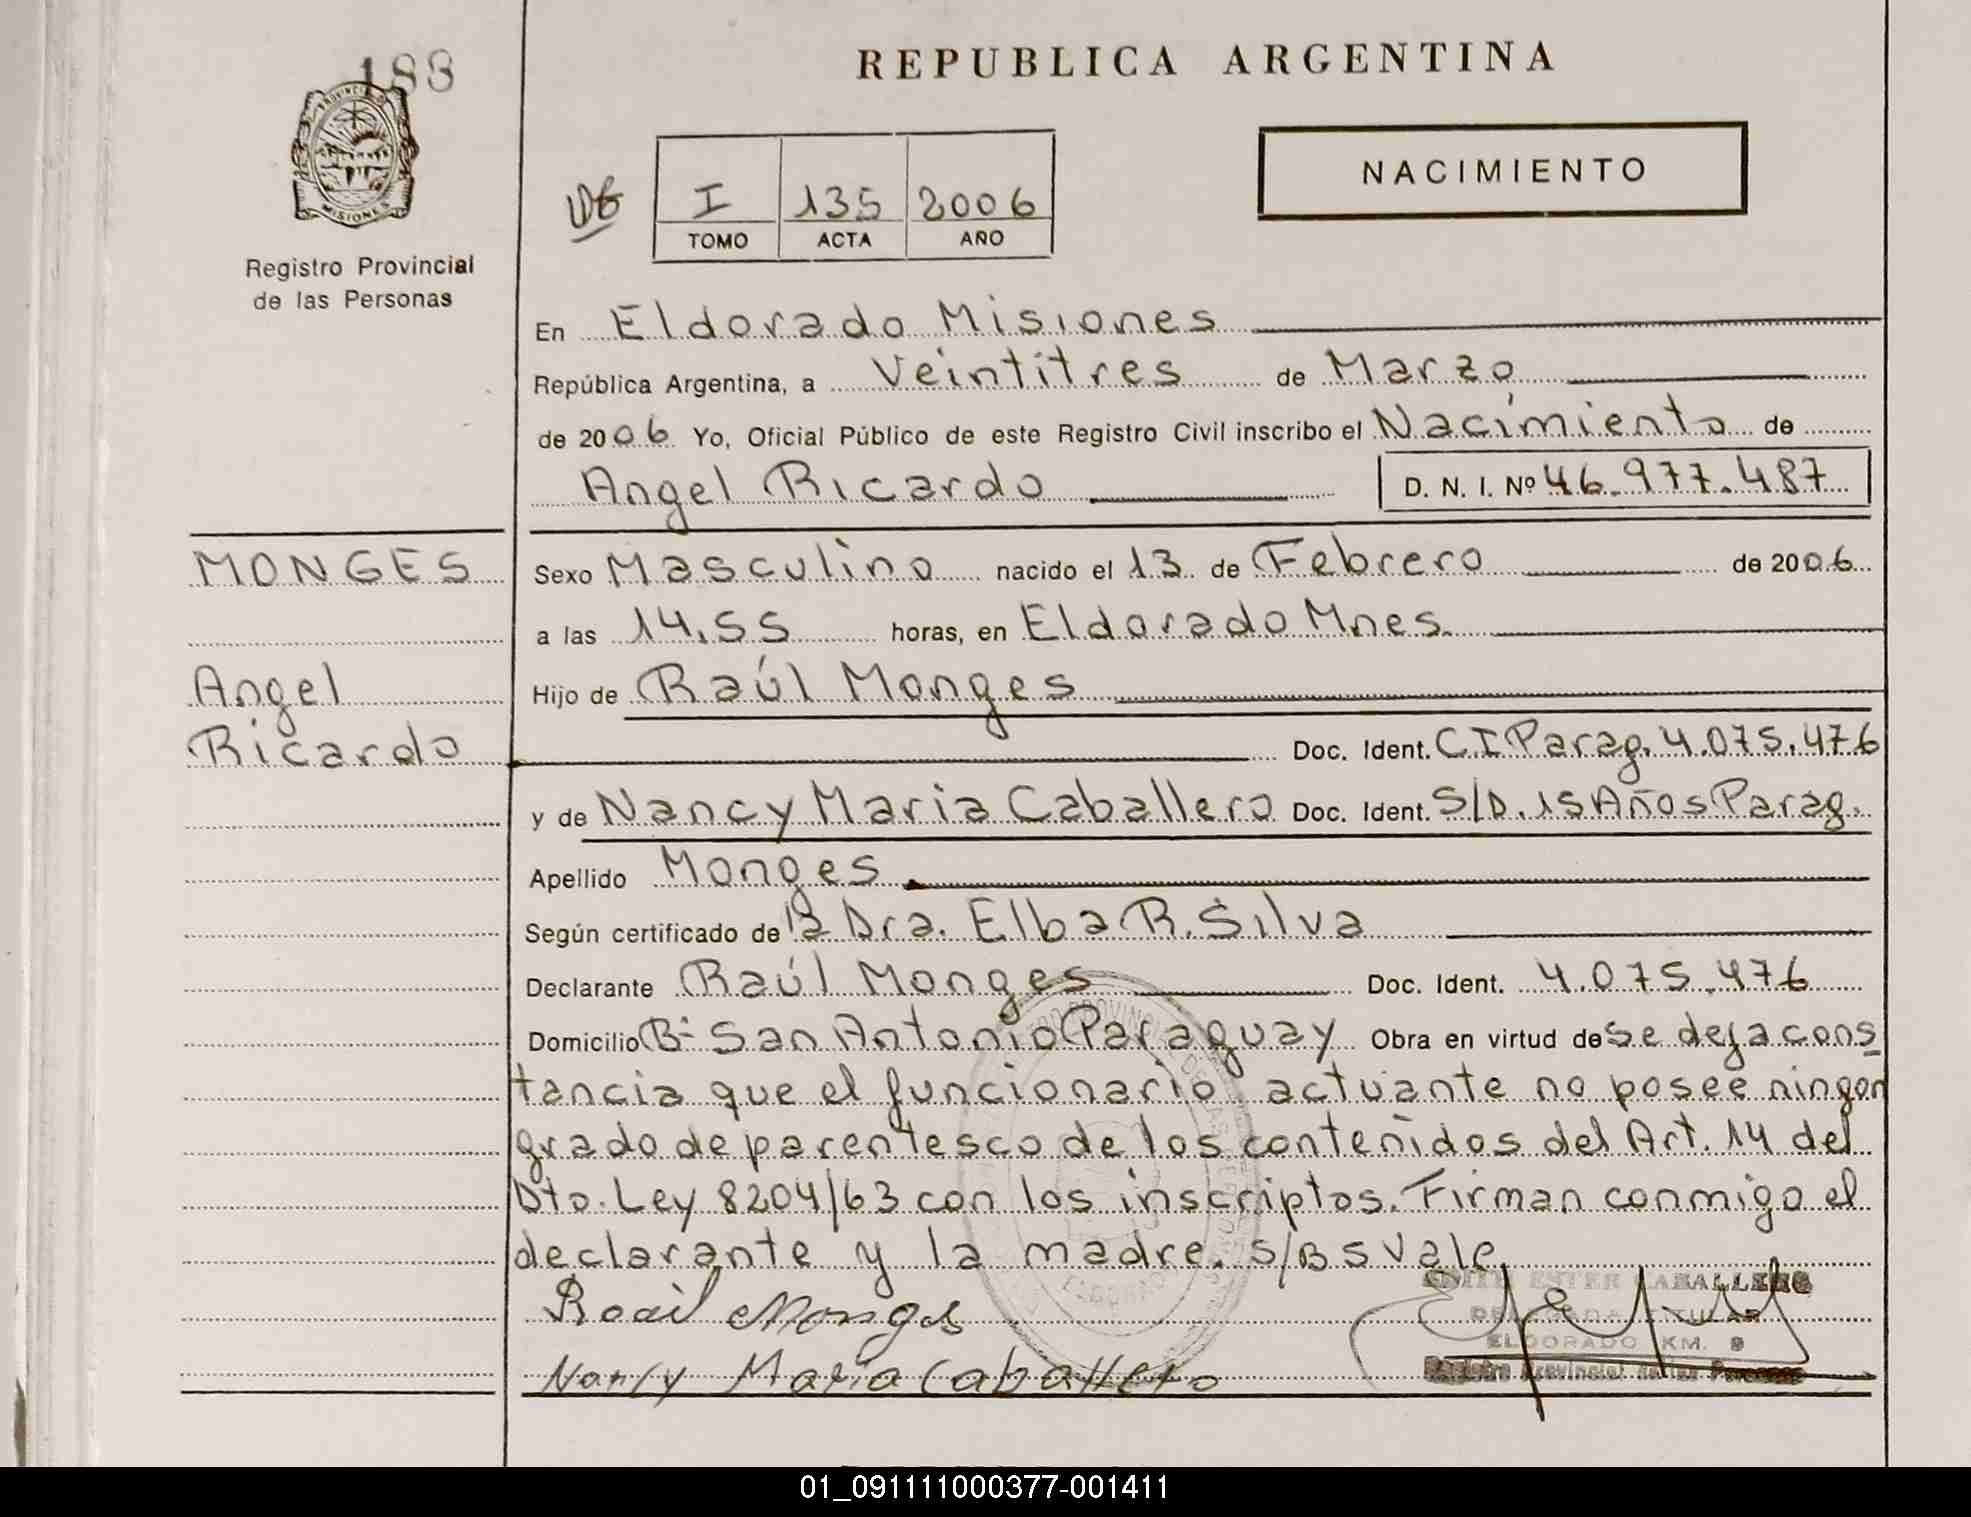 188
REPUBLICA ARGENTINA
PROVINCIA DE
MISIONES
Registro Provincial
de las Personas
I 135 2006
TOMO ACTA AÑO
NACIMIENTO
En Eldorado Misiones
República Argentina, a Veintitres de Marzo
de 2006 Yo, Oficial Público de este Registro Civil inscribo el Nacimiento de
Angel Ricardo D. N. I. Nº 46.977.487
MONGES
Sexo Masculino nacido el 13 de Febrero de 2006
a las 14,55 horas, en Eldorado Mnes.
Angel
Hijo de Raúl Monges
Ricardo
Doc. Ident. CI Parag. 4.075.476
y de Nancy Maria Caballero Doc. Ident. S/D. 15 Años Parag.
Apellido Monges
Según certificado de la Dra. Elba R. Silva
Declarante Raúl Monges Doc. Ident. 4.075.476
Domicilio Bº San Antonio Paraguay Obra en virtud de Se deja cons
tancia que el funcionario actuante no posee ningun
grado de parentesco de los contenidos del Art. 14 del
Dto. Ley 8204/63 con los inscriptos. Firman conmigo el
declarante y la madre. S/B S Vale
Raúl Monges
Nancy Maria Caballero
ESTER CABALLERO
DELEGADA TITULAR
ELDORADO KM. 9
Registro Provincial de las Personas
01_091111000377-001411